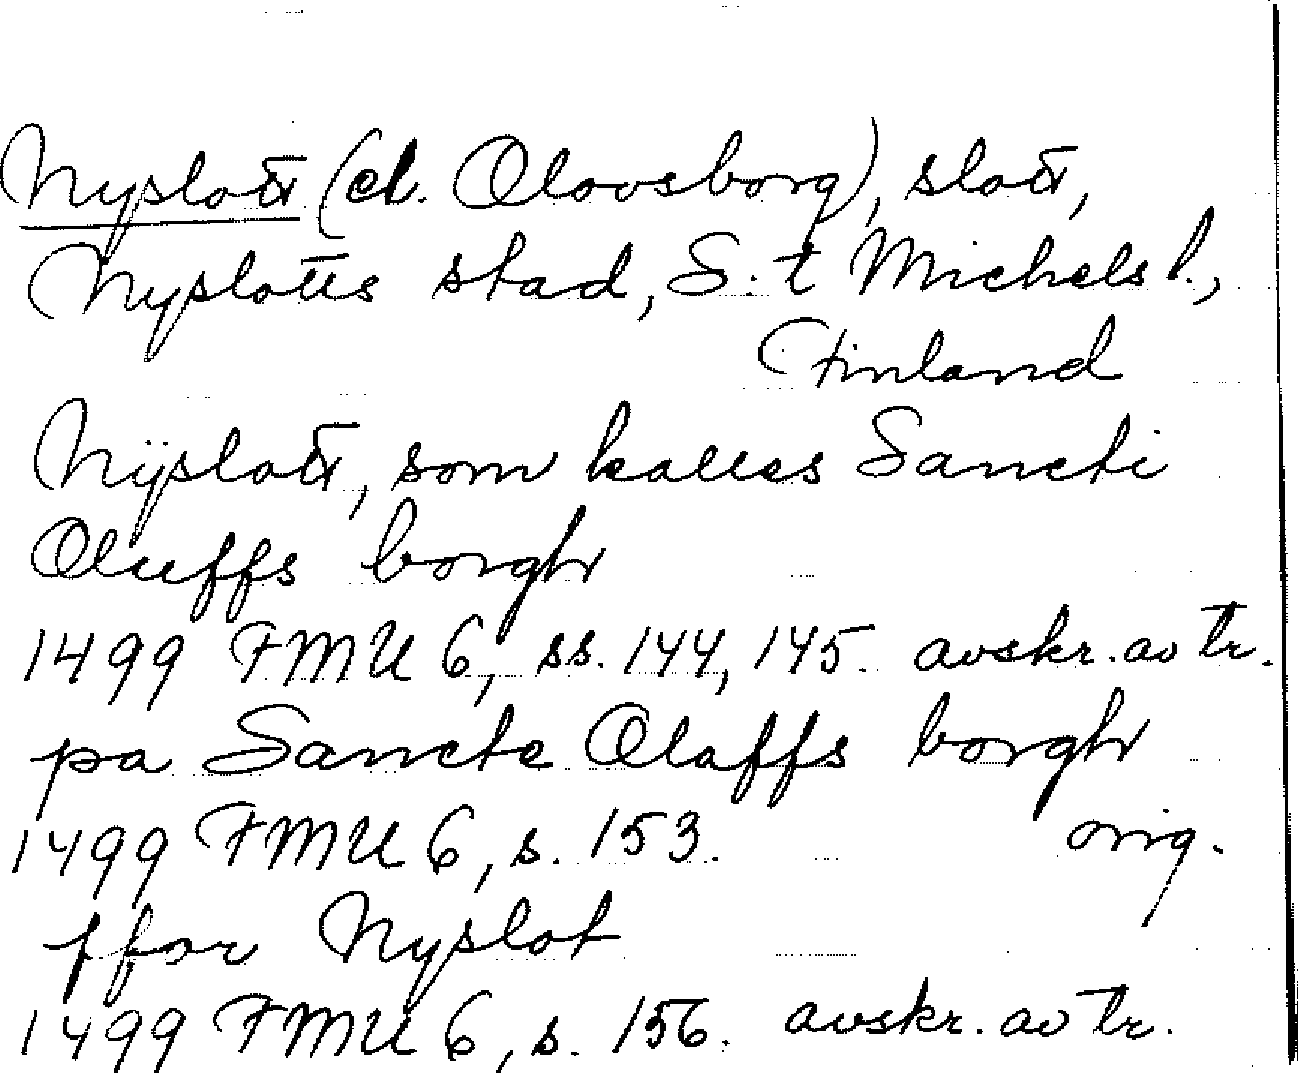 Nyslott (el. Olovsborg), slott,
Nyslotts stad, S:t Michels l.,
Finland
Nÿslott, som kalles Sancti
Oluffs borgh
1499 FMU 6, ss. 144, 145. avskr. av tr.
pa Sancte Olaffs borgh
1499 FMU 6, s. 153. orig.
ffor Nyslot
1499 FMU 6, s. 156. avskr. av tr.